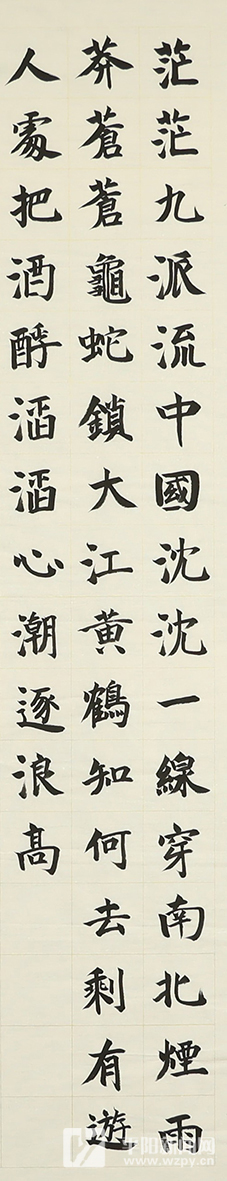 茫茫九派流中國沈沈一線穿南北煙雨
莽蒼蒼龜蛇鎖大江黃鶴知何去剩有遊
人處把酒酹滔滔心潮逐浪高
平阳新闻网
www.wzpy.cn